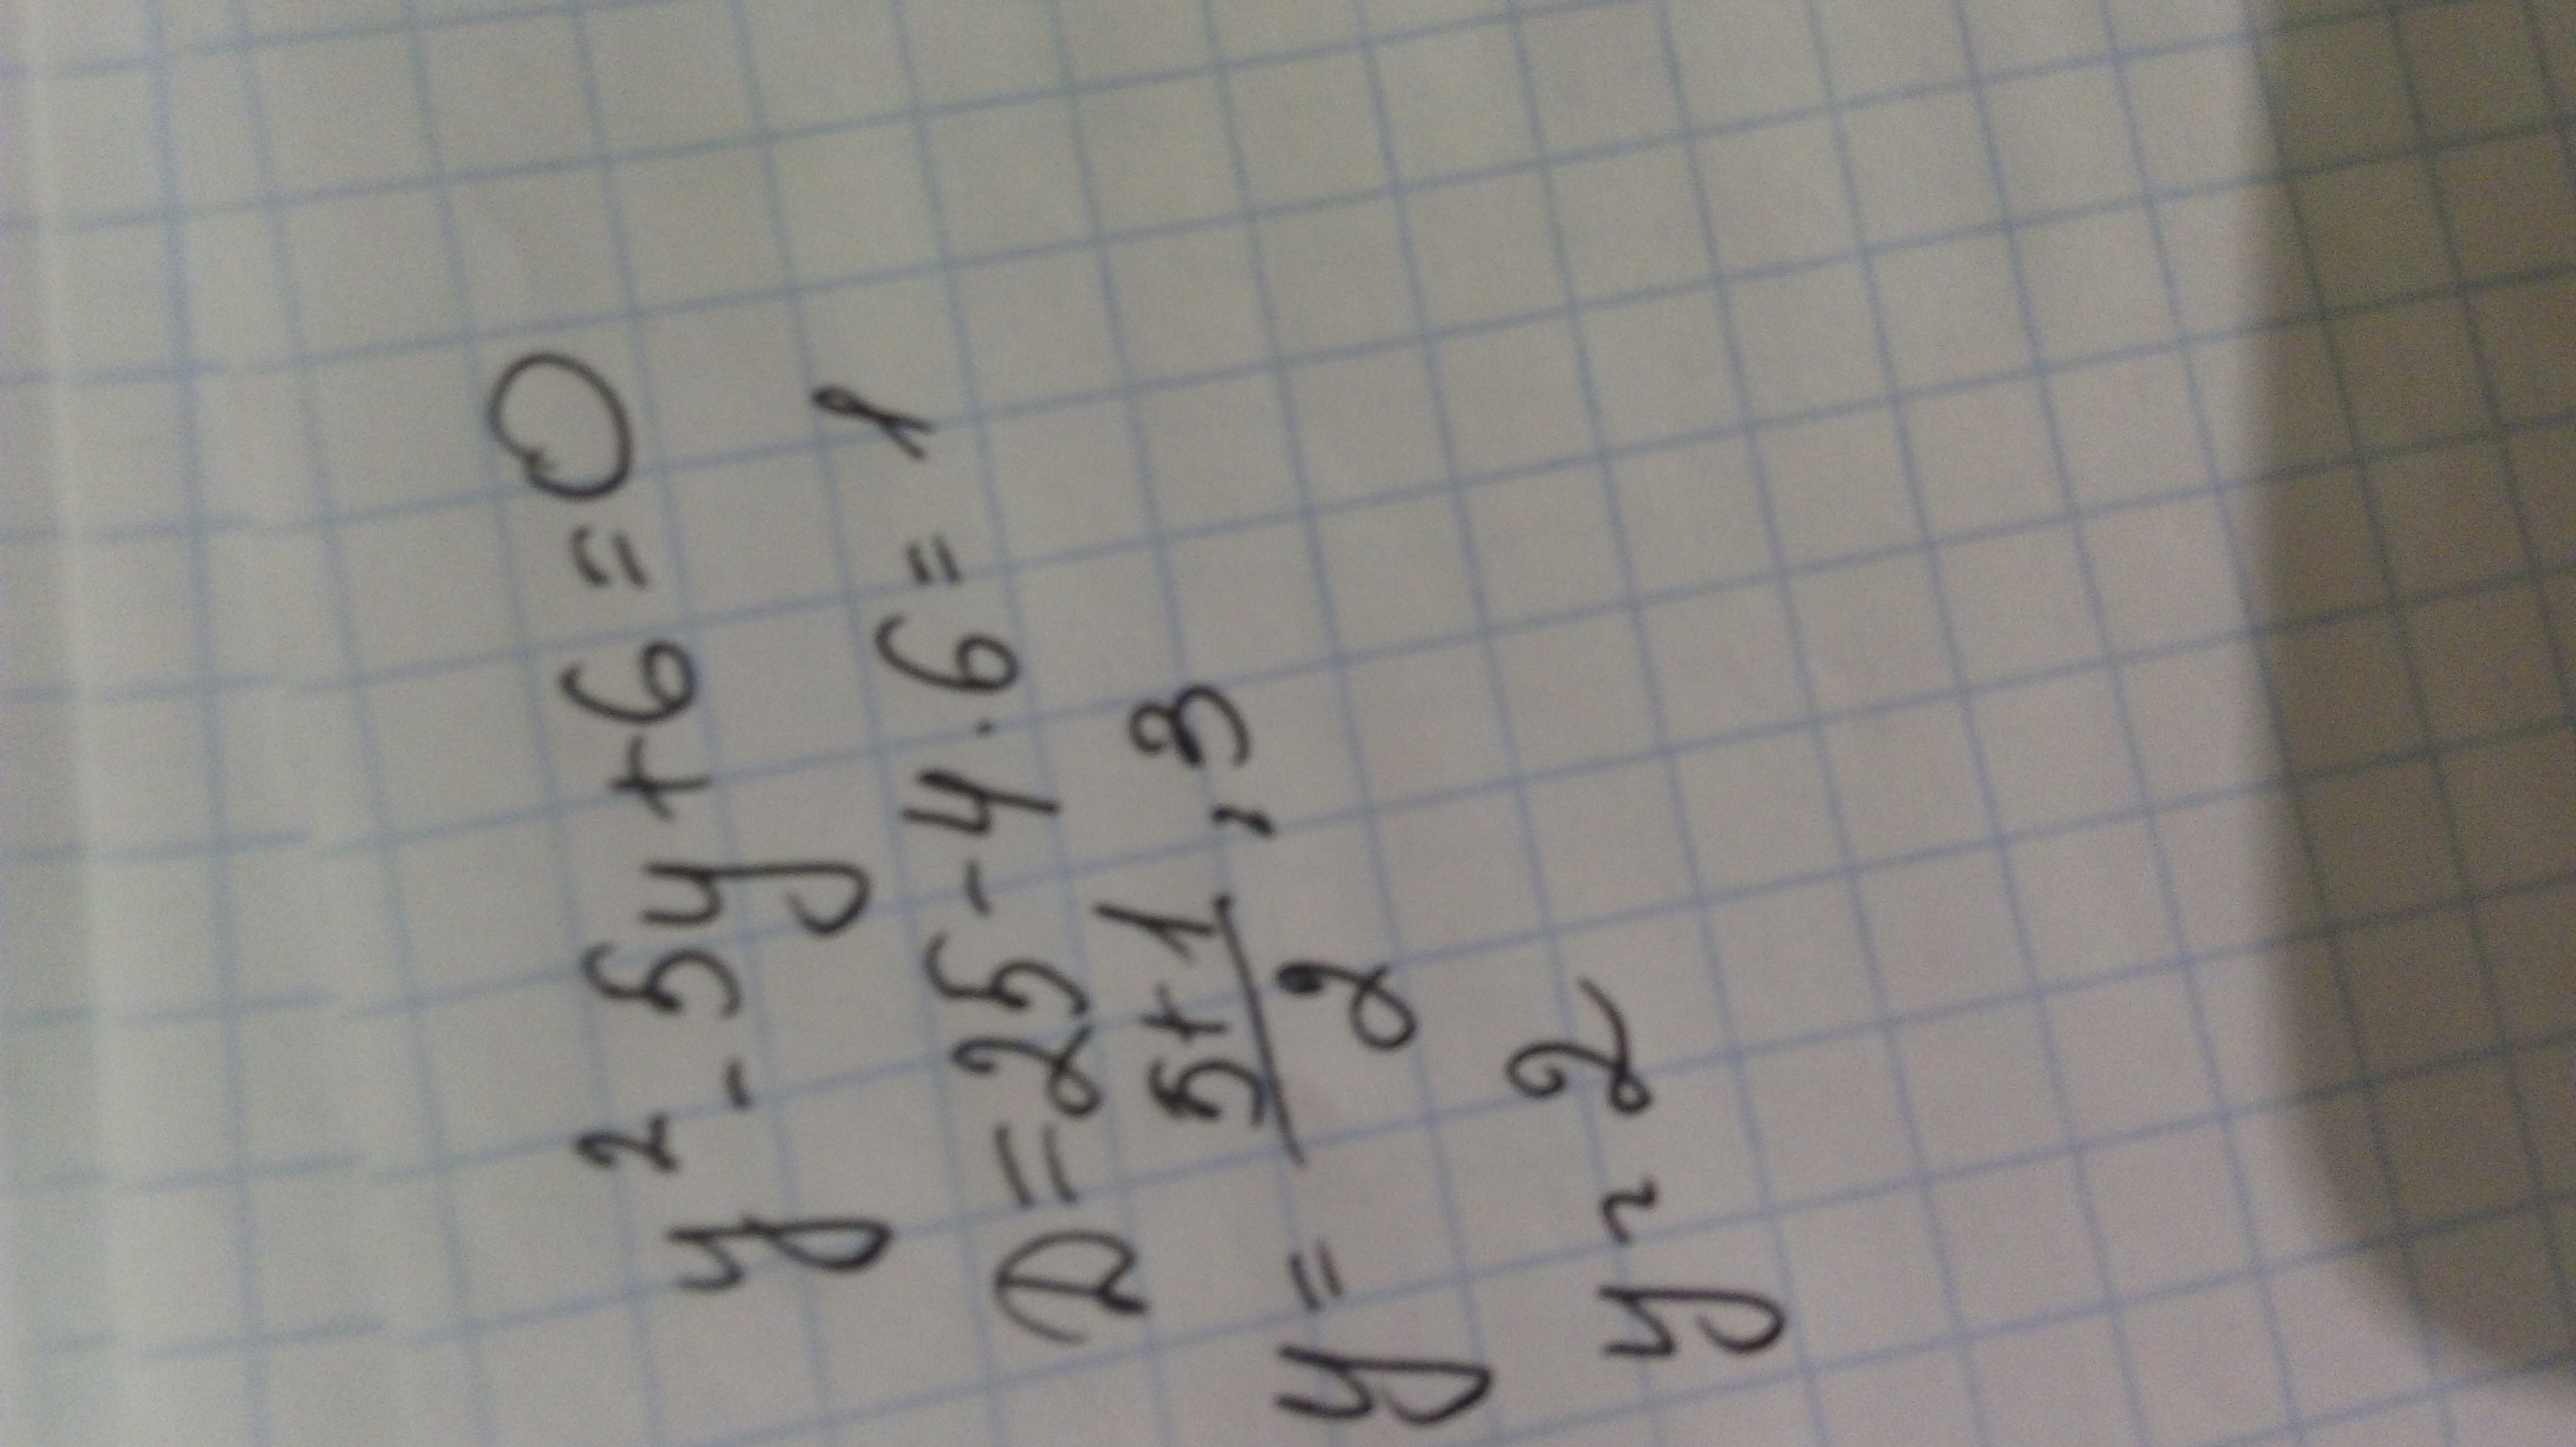 y² - 5y + 6 = 0
D = 25 - 4 · 6 = 1
y = (5+1)/2, 3
y = 2